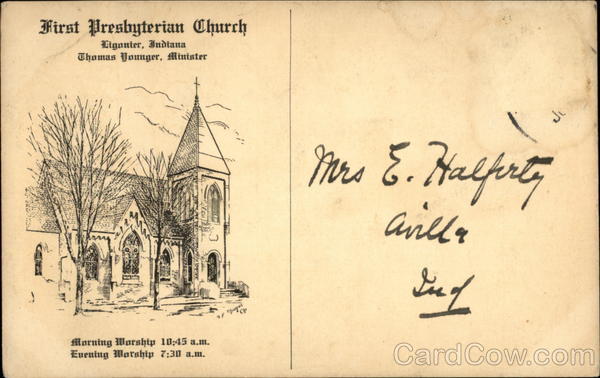 First Presbyterian Church
Ligonier, Indiana
Thomas Younger, Minister
Morning Worship 10:45 a.m.
Evening Worship 7:30 a.m.
Mrs E. Halferty
Avilla
Ind
CardCow.com